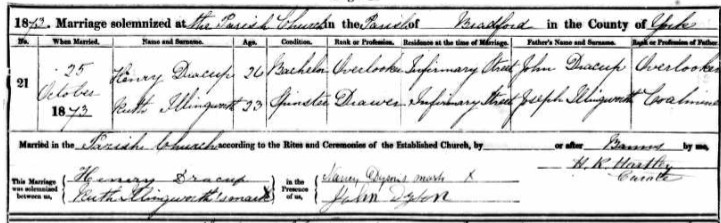 1873. Marriage solemnized at the Parish Church in the Parish of Bradford in the County of York
No. When Married. Name and Surname. Age. Condition. Rank or Profession. Residence at the time of Marriage. Father's Name and Surname. Rank or Profession of Father.
21 25 October 1873 Henry Dracup 26 Bachelor Overlooker Infirmary Street John Dracup Overlooker
Ruth Illingworth 23 Spinster Drawer Infirmary Street Joseph Illingworth Coalminer
Married in the Parish Church according to the Rites and Ceremonies of the Established Church, by or after Banns by me,
H. R. Hartley
Curate
This Marriage was solemnized between us, Henry Dracup in the Presence of us, Dyson's mark X
Ruth Illingworth's mark X John Dyson